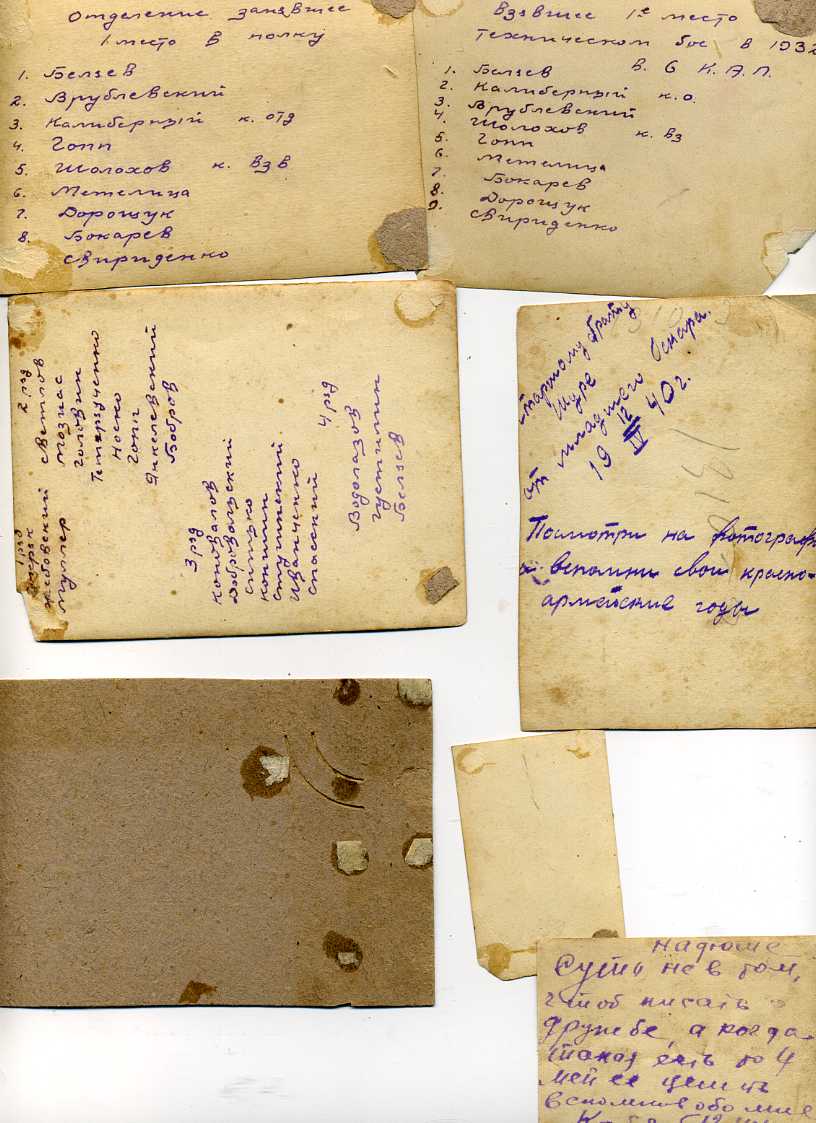 Отделение занявшее
1 место в полку
1. Белзев
2. Врублевский
3. Калиберный к. отд
4. Гопп
5. Шолохов к. взв
6. Метелица
7. Дорощук
8. Бокарев
Свириденко
Взявшее 1е место
техническом бое в 1932
в. 6 К.А.П.
1. Белзев
2. Калиберный к.о.
3. Врублевский
4. Шолохов к. вз
5. Гопп
6. Метелица
7. Бокарев
8. Дорощук
9. Свириденко
1 ряд
Жебовский
Муллер
2 ряд
Светлов
Мозиас
Головин
Тетерученко
Носко
Гопп
Янкелевский
Бобров
3 ряд
Коновалов
Добровольский
Сипько
Коншин
Ступинский
Иванченко
Спасский
4 ряд
Водолазов
Густилин
Белзев
Старшому брату
Шуре
от младшего Оскара.
19 12/IV 40 г.
Посмотри на фотограф
и вспомни свои красно-
армейские годы
Надюше
Суть не в том,
чтоб писать о
дружбе, а когда
такая есть то у
мей ее ценить
вспомнив обо мне